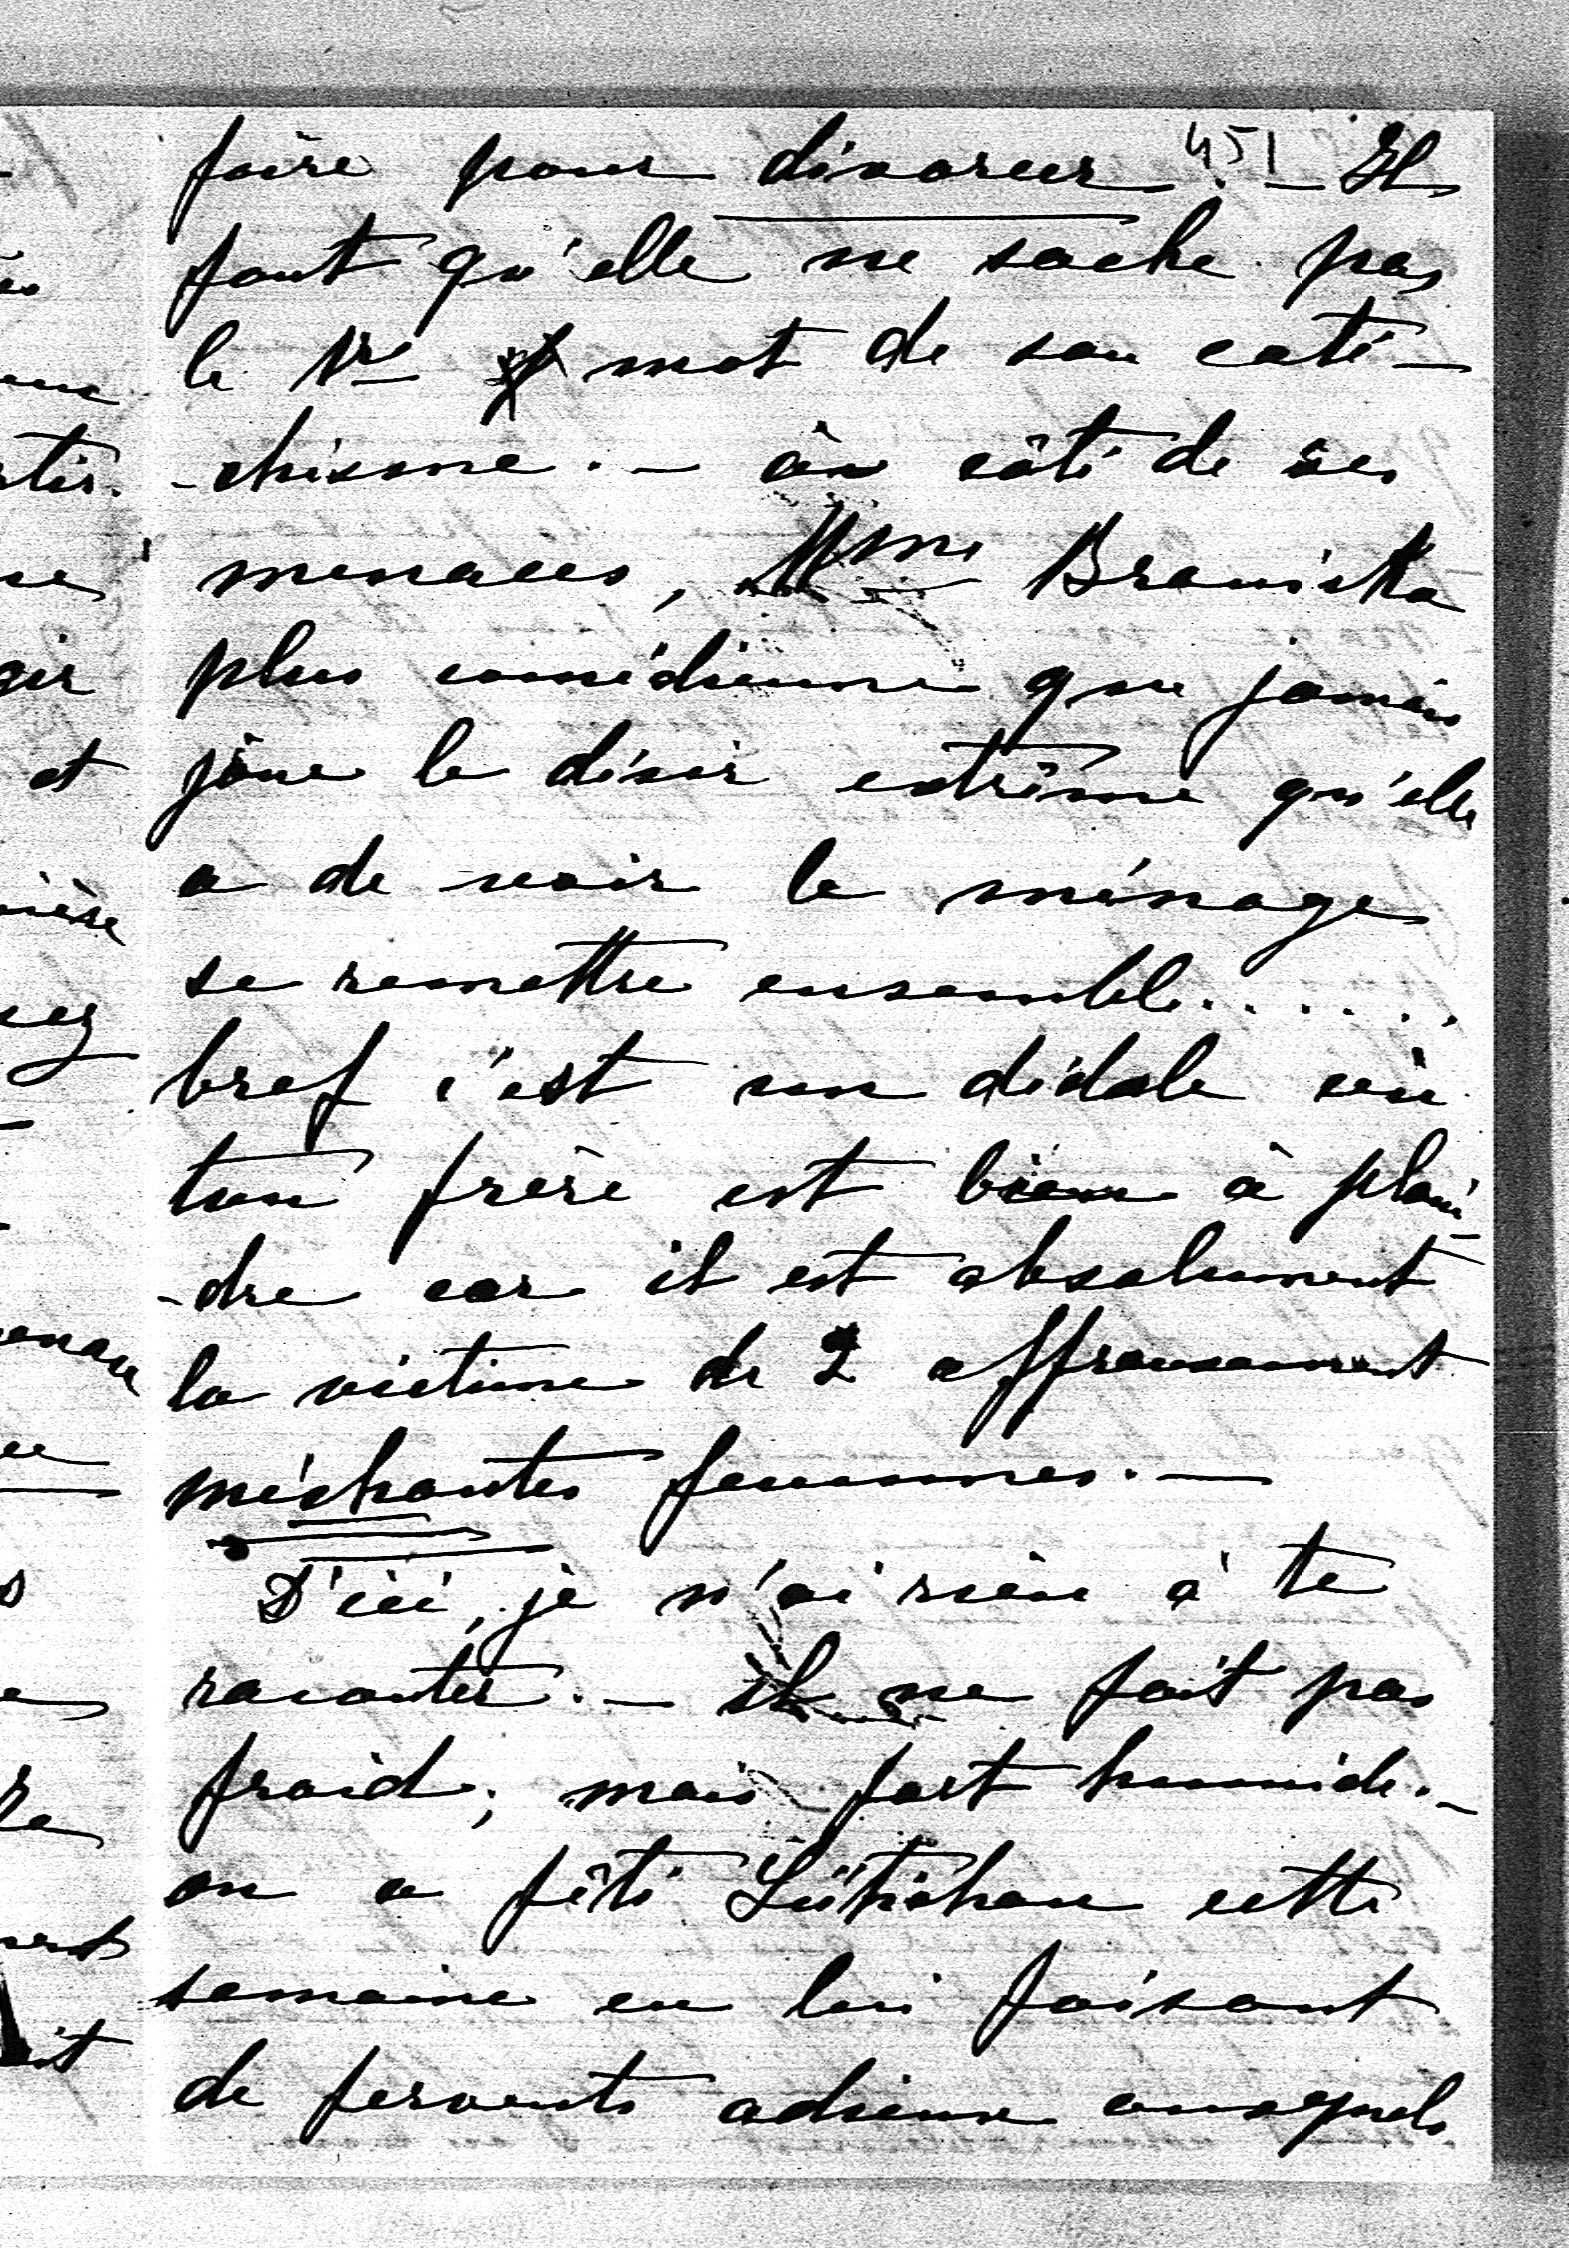 451
faire pour divorcer. — Il
faut qu'elle ne sache pas
le 1er mot de son caté-
-chisme. — à côté de ses
menaces, Mme Braniska
plus comédienne que jamais
joue le désir extrême qu'elle
a de voir le ménage
se remettre ensemble......
bref c'est un dédale où
ton frère est bien à plain-
-dre car il est absolument
la victime de 2 affreusement
méchantes femmes. —
D'ici, je n'ai rien à te
raconter. — il ne fait pas
froid; mais fort humide. —
on a fêté Lütichau cette
semaine en lui faisant
de fervents adieux auxquels